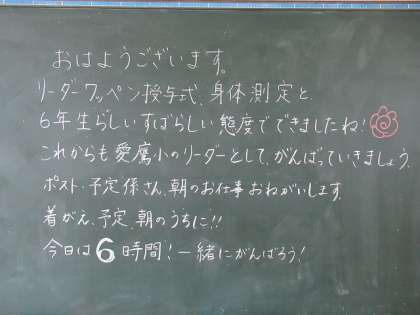 おはようございます。
リーダーワッペン授与式、身体測定と、
6年生らしいすばらしい態度でできましたね!
これからも愛鷹小のリーダーとして、がんばっていきましょう。
ポスト・予定係さん、朝のお仕事おねがいします。
着がえ、予定、朝のうちに!!
今日は6時間!一緒にがんばろう!